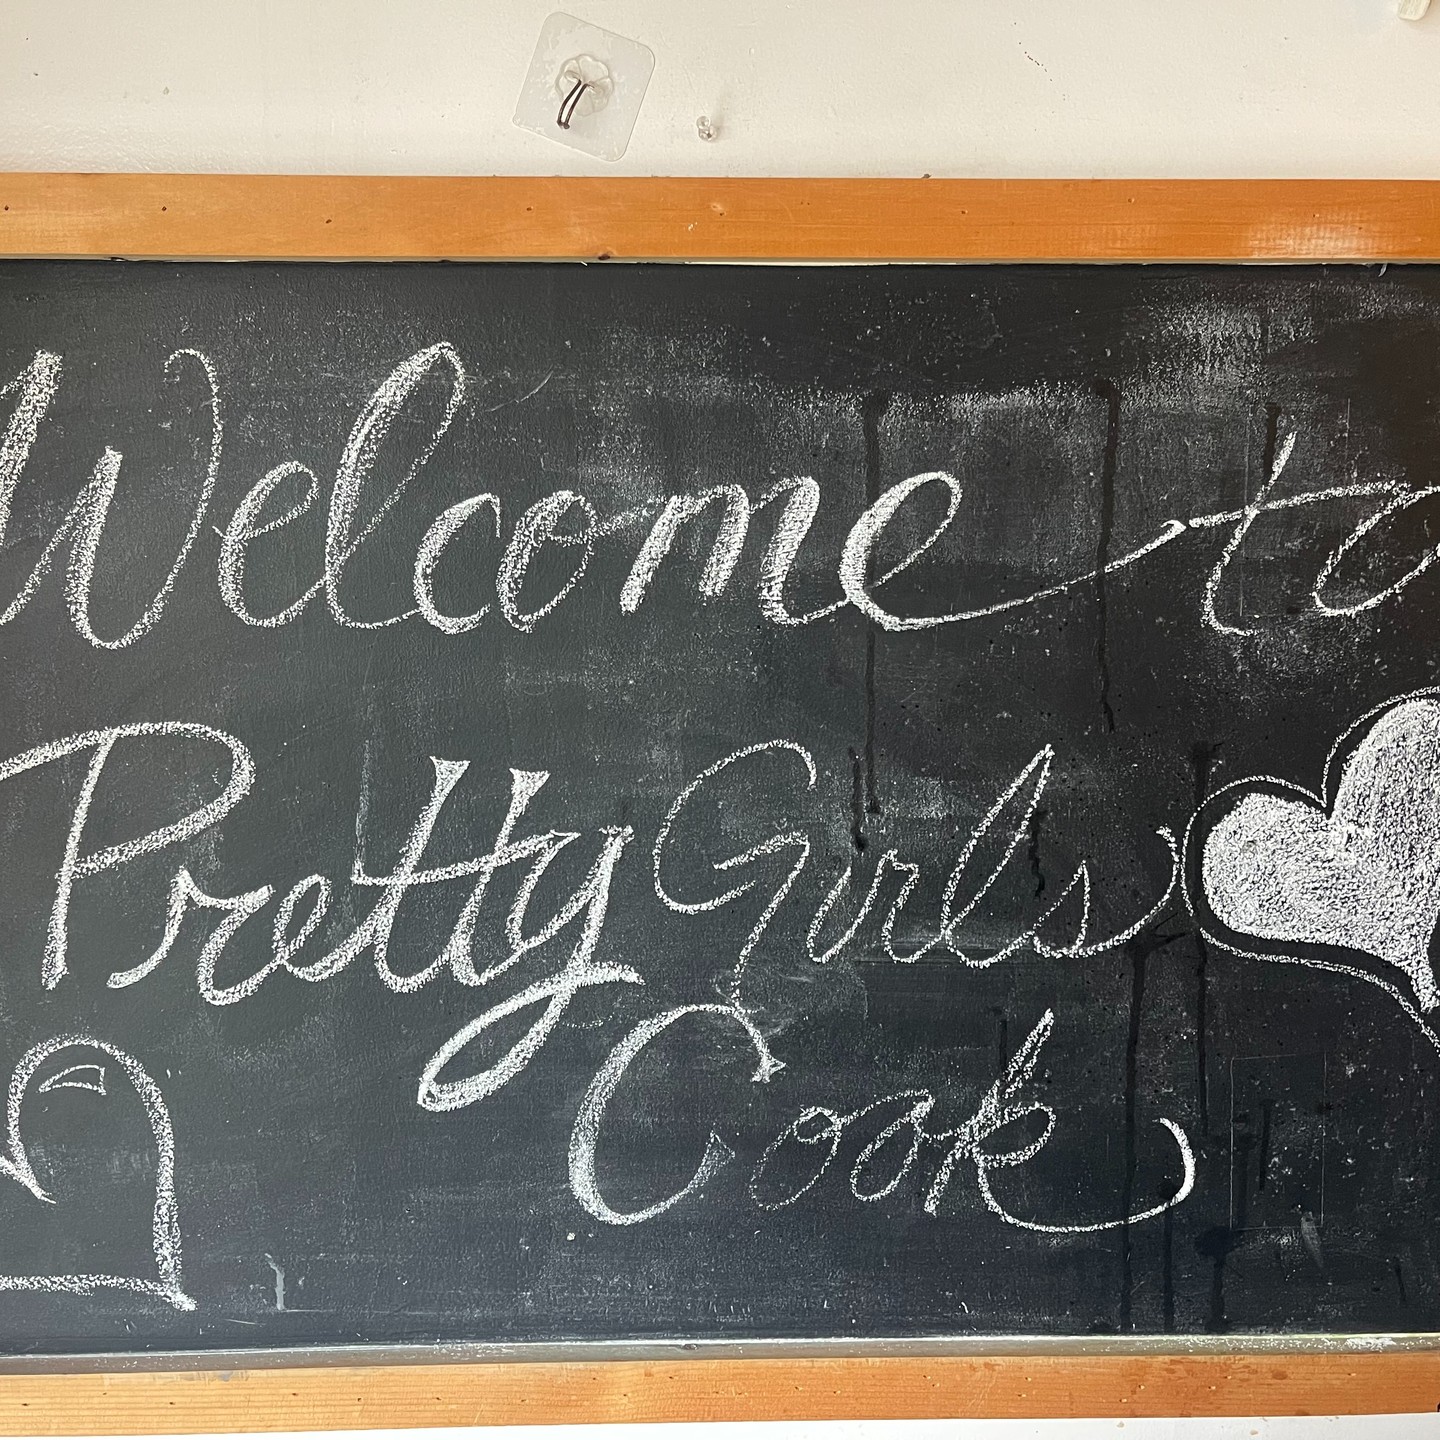 Welcome to
Pretty Girls
Cook